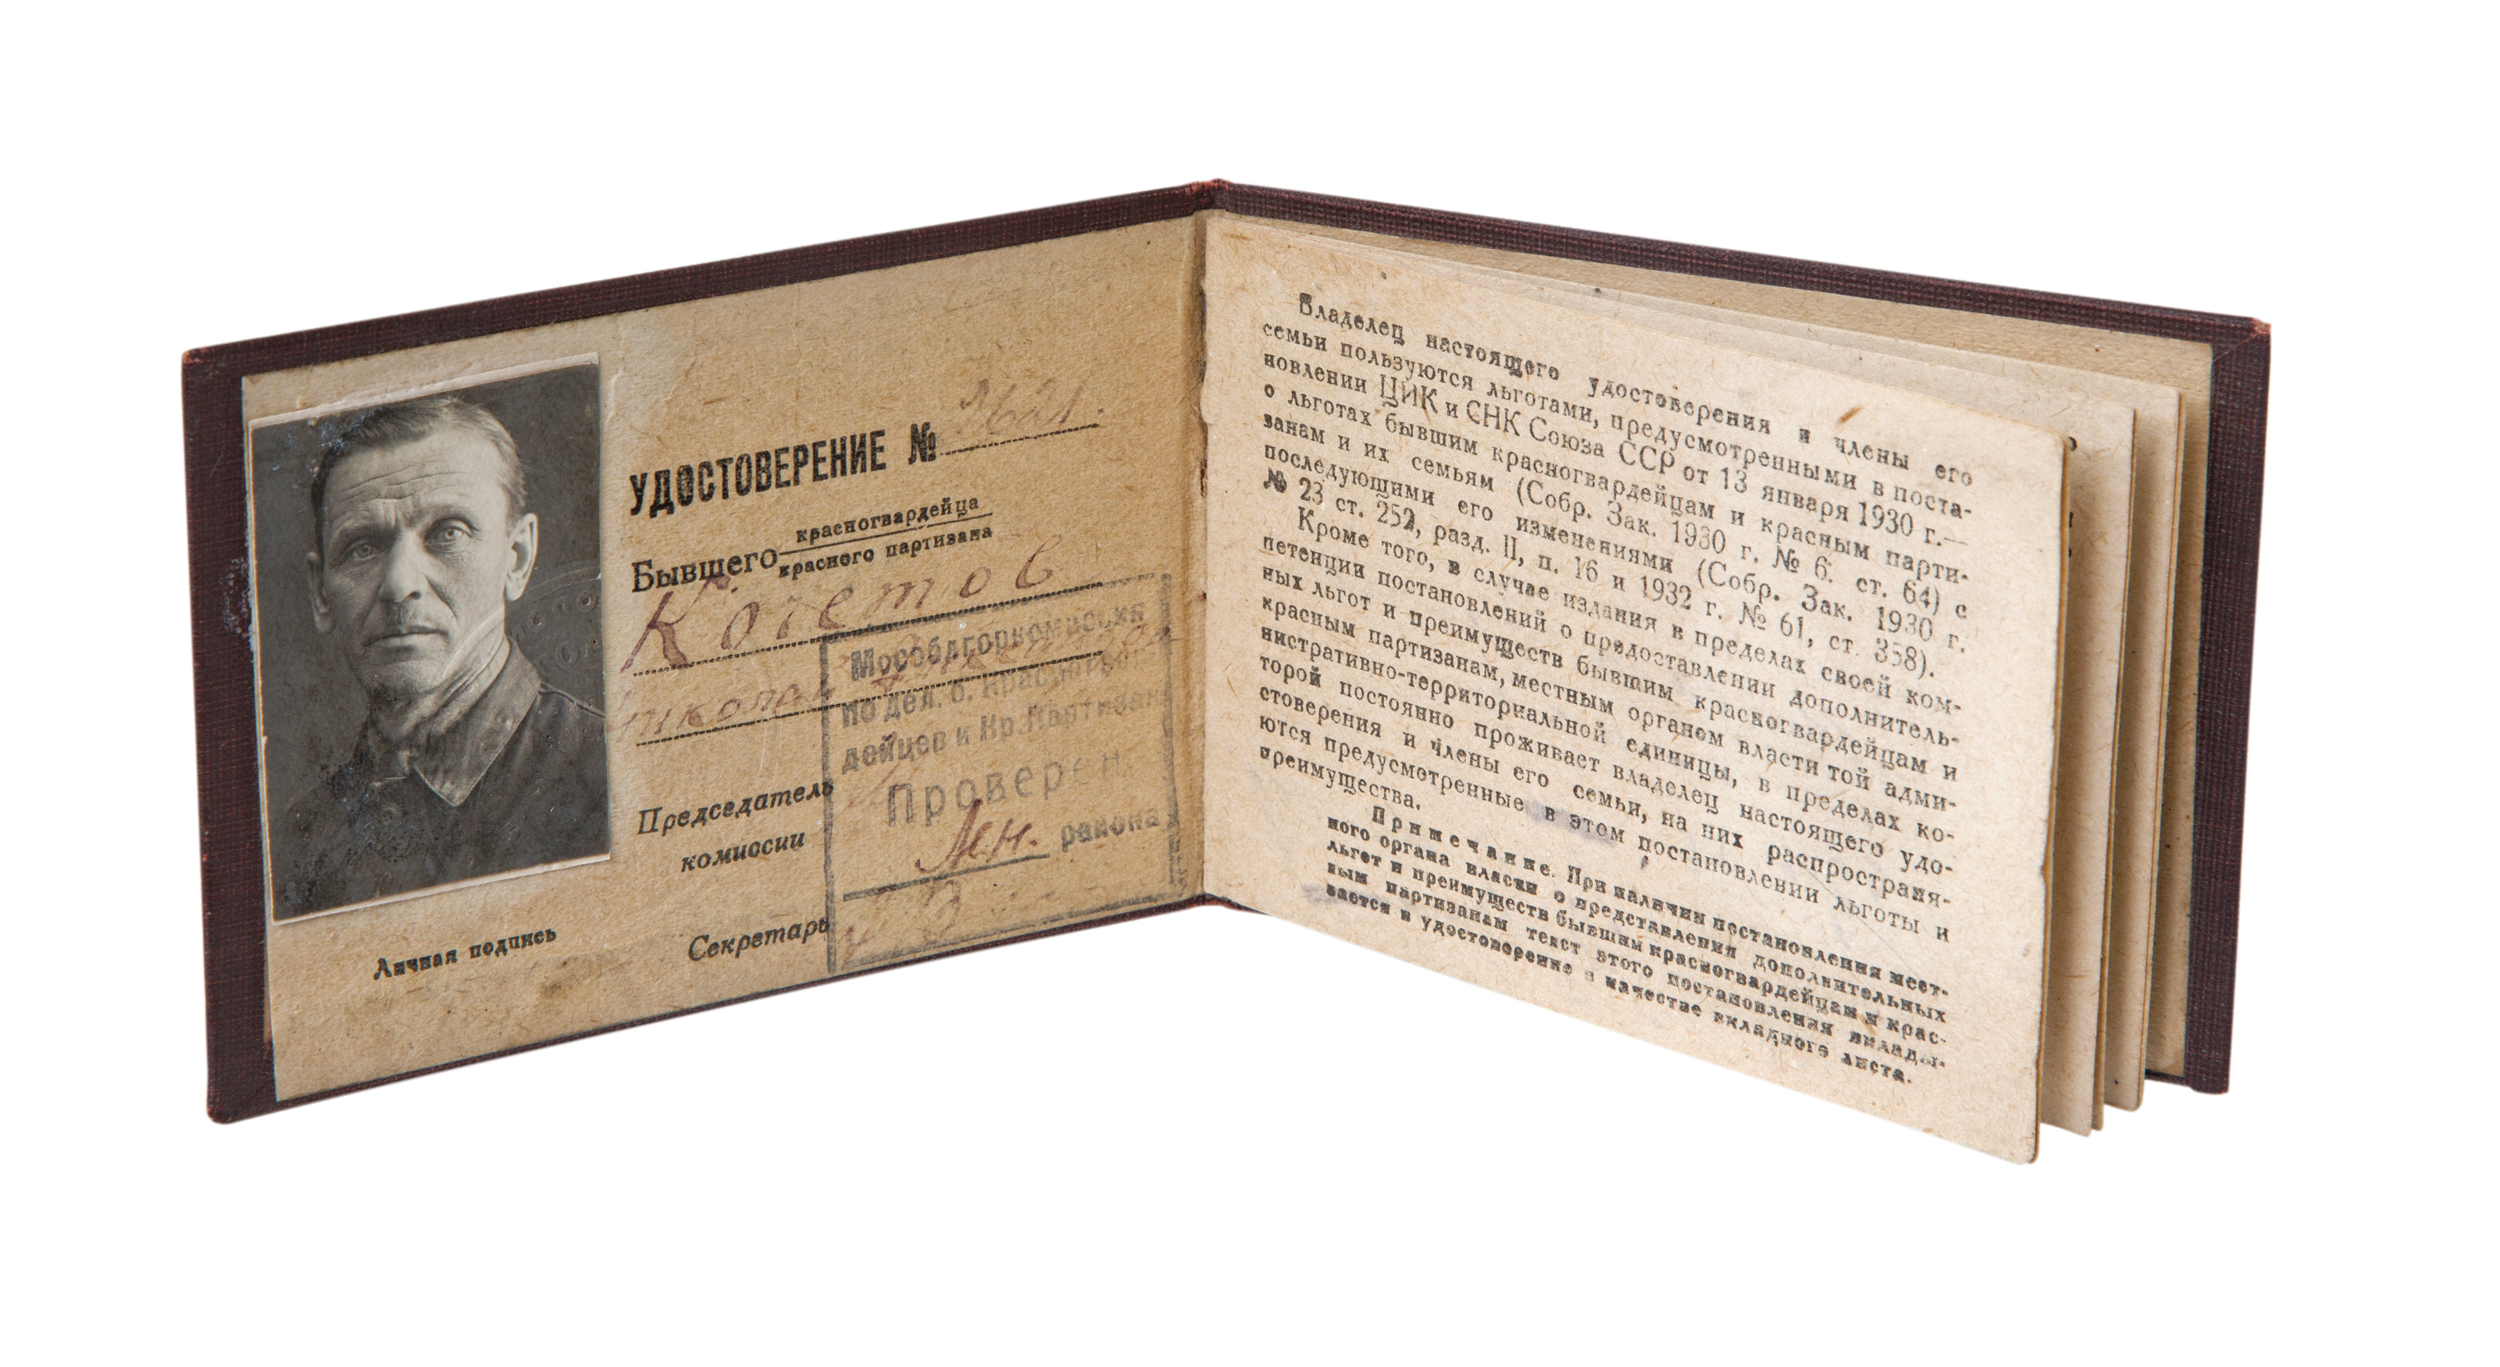 УДОСТОВЕРЕНИЕ №
Бывшего красногвардейца
красного партизана
Кочетов
Николай
Председатель
комиссии
Секретарь
Личная подпись
Мособлгоркомиссия
по дел. б. Красногвар
дейцев и Кр. Партизан
Проверен
Лен. района
Владелец настоящего удостоверения и члены его
семьи пользуются льготами, предусмотренными в поста-
новлении ЦИК и СНК Союза ССР от 13 января 1930 г.—
о льготах бывшим красногвардейцам и красным парти-
занам и их семьям (Собр. Зак. 1930 г. № 6. ст. 64) с
последующими его изменениями (Собр. Зак. 1930 г.
№ 23 ст. 252, разд. II, п. 16 и 1932 г. № 61, ст. 358).
Кроме того, в случае издания в пределах своей ком-
петенции постановлений о предоставлении дополнитель-
ных льгот и преимуществ бывшим красногвардейцам и
красным партизанам, местным органом власти той адми-
нистративно-территориальной единицы, в пределах ко-
торой постоянно проживает владелец настоящего удо-
стоверения и члены его семьи, на них распространя-
ются предусмотренные в этом постановлении льготы и
преимущества.
Примечание. При наличии постановления мест-
ного органа власти о представлении дополнительных
льгот и преимуществ бывшим красногвардейцам и крас-
ным партизанам текст этого постановления вклады-
вается в удостоверение в качестве вкладного листа.